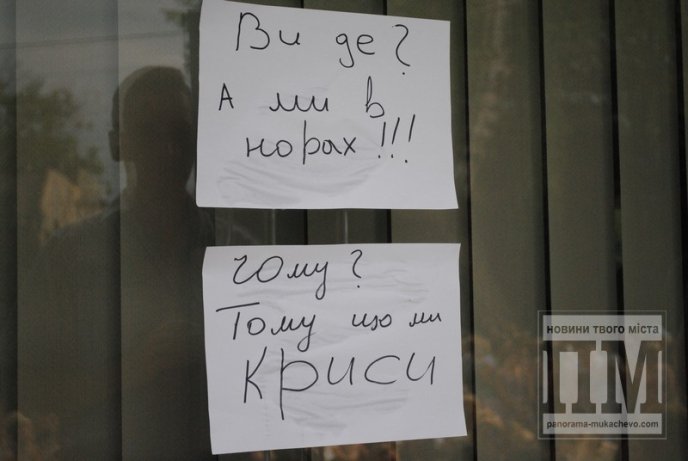 Ви де?
А ми в
норах!!!
Чому?
Тому що ми
криси
новини твого міста
ПМ
panorama-mukachevo.com